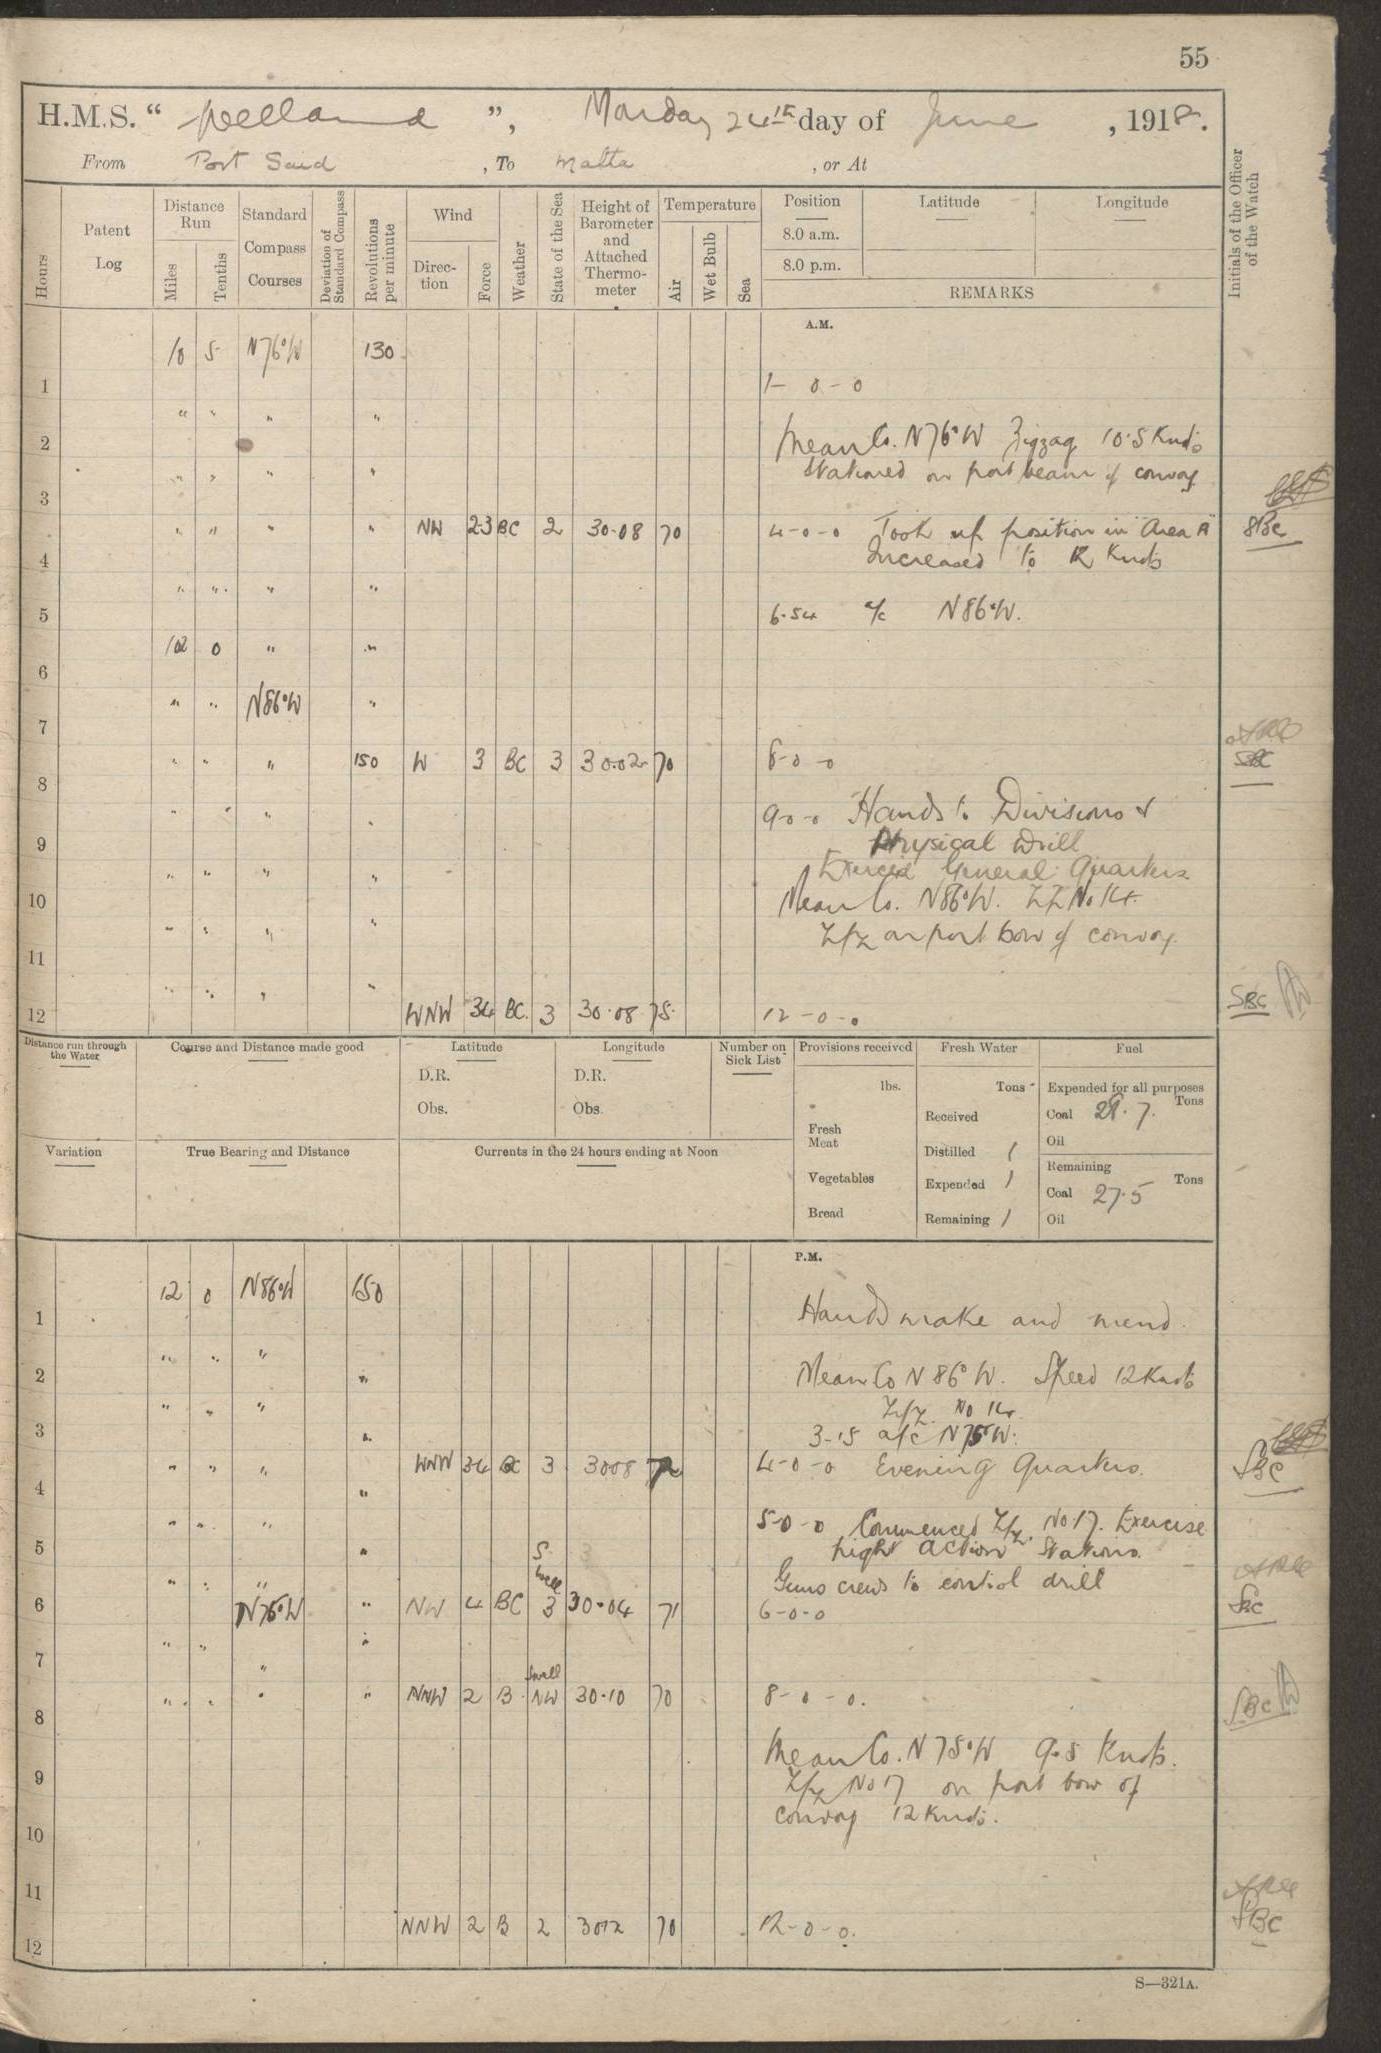 55
H.M.S. " Welland ", Monday 24th day of June, 1918.
From Port Said, To Malta, or At
Hours
Patent Log
Distance Run
Miles
Tenths
Standard Compass Courses
Deviation of Standard Compass
Revolutions per minute
Wind
Direction
Force
Weather
State of the Sea
Height of Barometer and Attached Thermometer
Temperature
Air
Wet Bulb
Sea
Position
8.0 a.m.
8.0 p.m.
Latitude
Longitude
REMARKS
Initials of the Officer of the Watch
A.M.
10 5 N76°W 130
1 1-0-0
" " " "
2 Mean Co. N76°W Zigzag 10.5 Knots
" " " " Stationed on port beam of convoy
3
" " " " NW 2.3 BC 2 30.08 70 4-0-0 Took up position in "Area A" SBC
4 Increased to 12 Knots
" " " "
5 6.54 a/c N86°W.
12 0 " "
6
" " N86°W "
7
" " " 150 W 3 BC 3 30.02 70 8-0-0 SBC
8
" " " " 9-0-0 Hands to Divisions &
9 Physical Drill
" " " " Exercised General Quarters
10 Mean Co. N86°W. ZZ No 14.
" " " " Z/Z on port bow of convoy.
11
" " " "
12 WNW 34 BC. 3 30.08 75. 12-0-0 SBC
Distance run through the Water
Course and Distance made good
Latitude
D.R.
Obs.
Longitude
D.R.
Obs.
Number on Sick List
Provisions received
lbs.
Fresh Meat
Vegetables
Bread
Fresh Water
Tons
Received
Distilled 1
Expended 1
Remaining 1
Fuel
Expended for all purposes
Tons
Coal 28.7.
Oil
Remaining
Tons
Coal 27.5
Oil
Variation
True Bearing and Distance
Currents in the 24 hours ending at Noon
P.M.
12 0 N86°W 150
1 Hands make and mend.
" " "
2 " Mean Co N86°W. Speed 12 Knots
" " " Z/Z. No 14.
3 " 3-15 a/c N75°W.
" " " WNW 34 BC 3 3008 72 4-0-0 Evening Quarters. SBC
4 "
" " " 5-0-0 Commenced Z/Z. No 17. Exercise
5 " night action Stations.
" " " Swell Guns crews to control drill
6 N75°W " NW 4 BC 3 30.04 71 6-0-0 SBC
" " "
7 "
" " " " NNW 2 B. Swell NW 30.10 70 8-0-0. SBC
8
Mean Co. N75°W 9.5 Knots.
9 Z/Z No 17 on port bow of
convoy 12 Knots.
10
11
NNW 2 B 2 3012 70 12-0-0. SBC
12
S—321A.